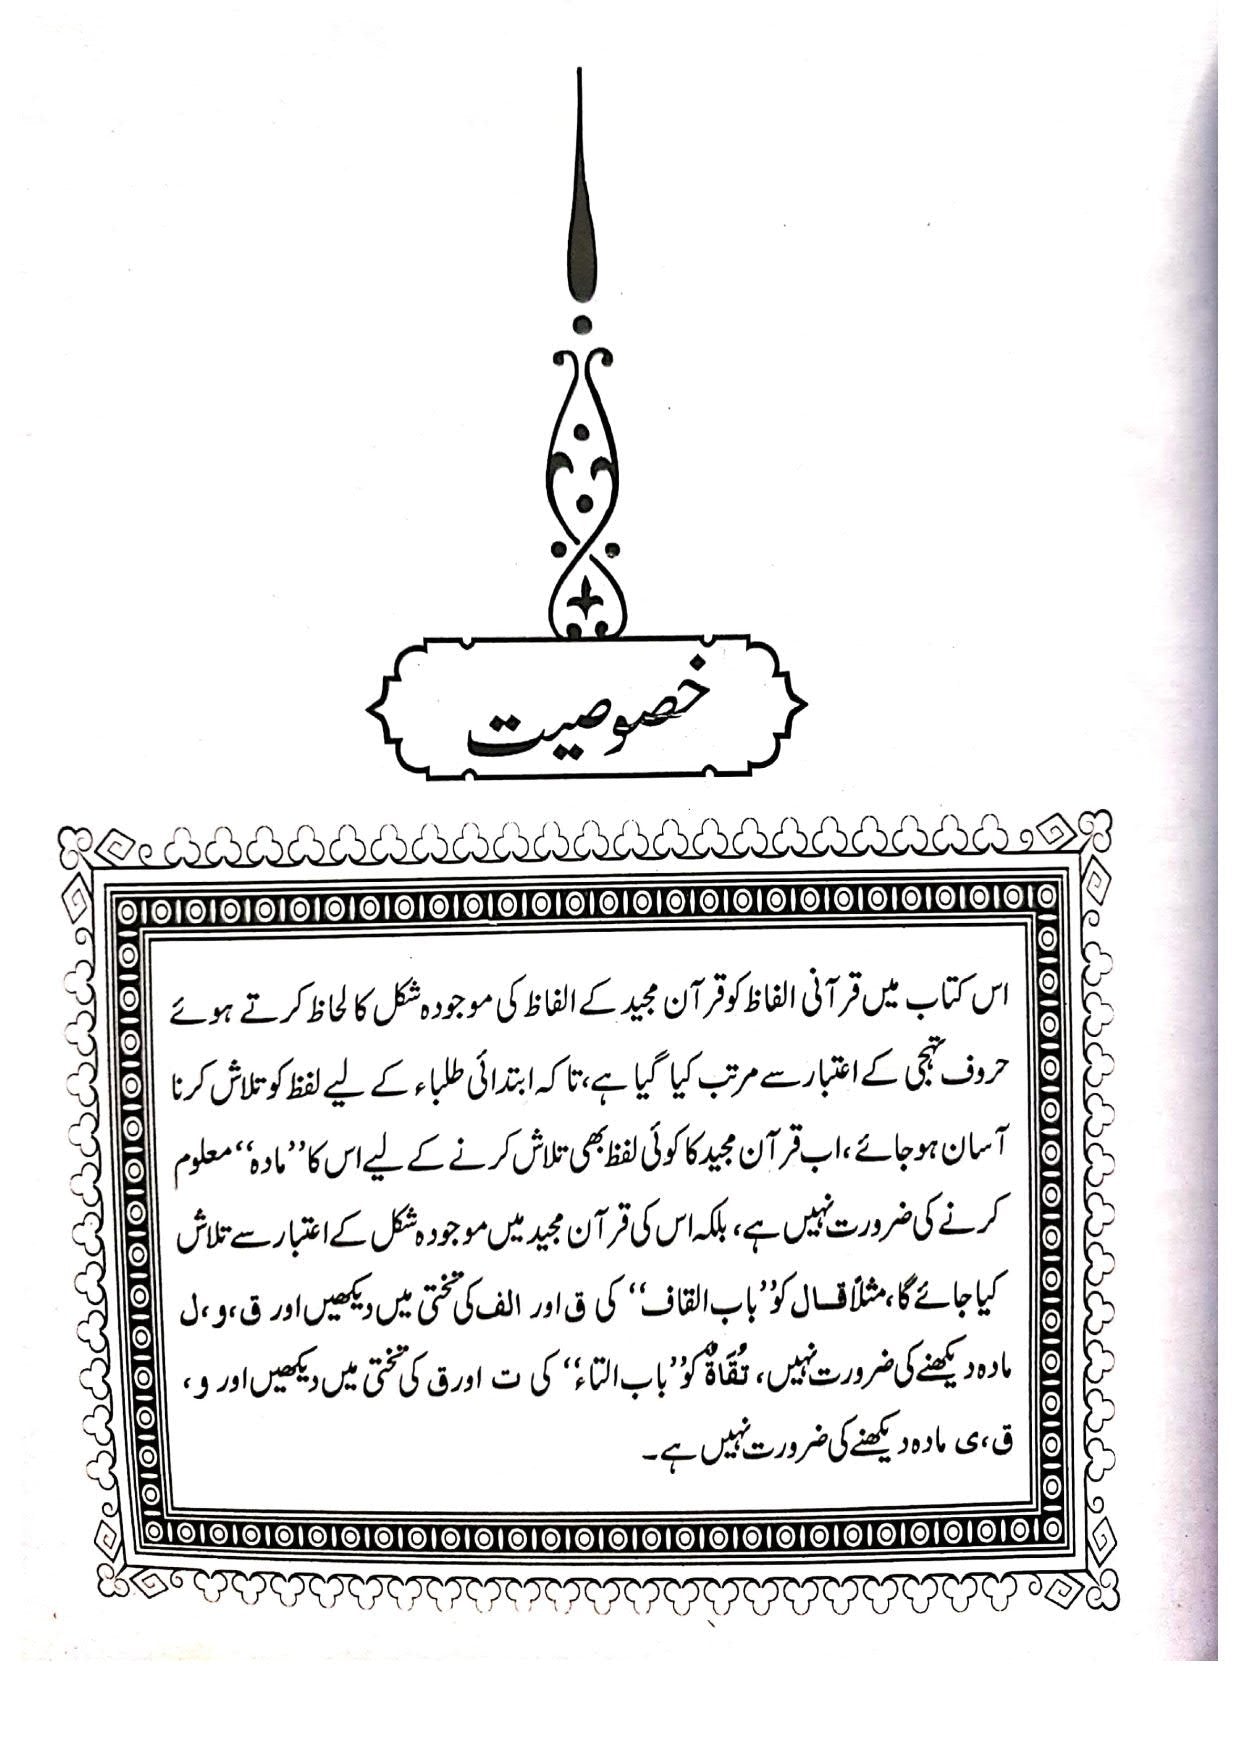 خصوصیت
اس کتاب میں قرآنی الفاظ کو قرآن مجید کے الفاظ کی موجودہ شکل کا لحاظ کرتے ہوئے
حروف تہجی کے اعتبار سے مرتب کیا گیا ہے، تاکہ ابتدائی طلباء کے لیے لفظ کو تلاش کرنا
آسان ہو جائے، اب قرآن مجید کا کوئی لفظ بھی تلاش کرنے کے لیے اس کا ”مادہ“ معلوم
کرنے کی ضرورت نہیں ہے، بلکہ اس کی قرآن مجید میں موجودہ شکل کے اعتبار سے تلاش
کیا جائے گا، مثلاً قال کو ”باب القاف“ کی ق اور الف کی تختی میں دیکھیں اور ق، و، ل
مادہ دیکھنے کی ضرورت نہیں، تُقَاةٌ کو ”باب التاء“ کی ت اور ق کی تختی میں دیکھیں اور و،
ق، ی مادہ دیکھنے کی ضرورت نہیں ہے۔